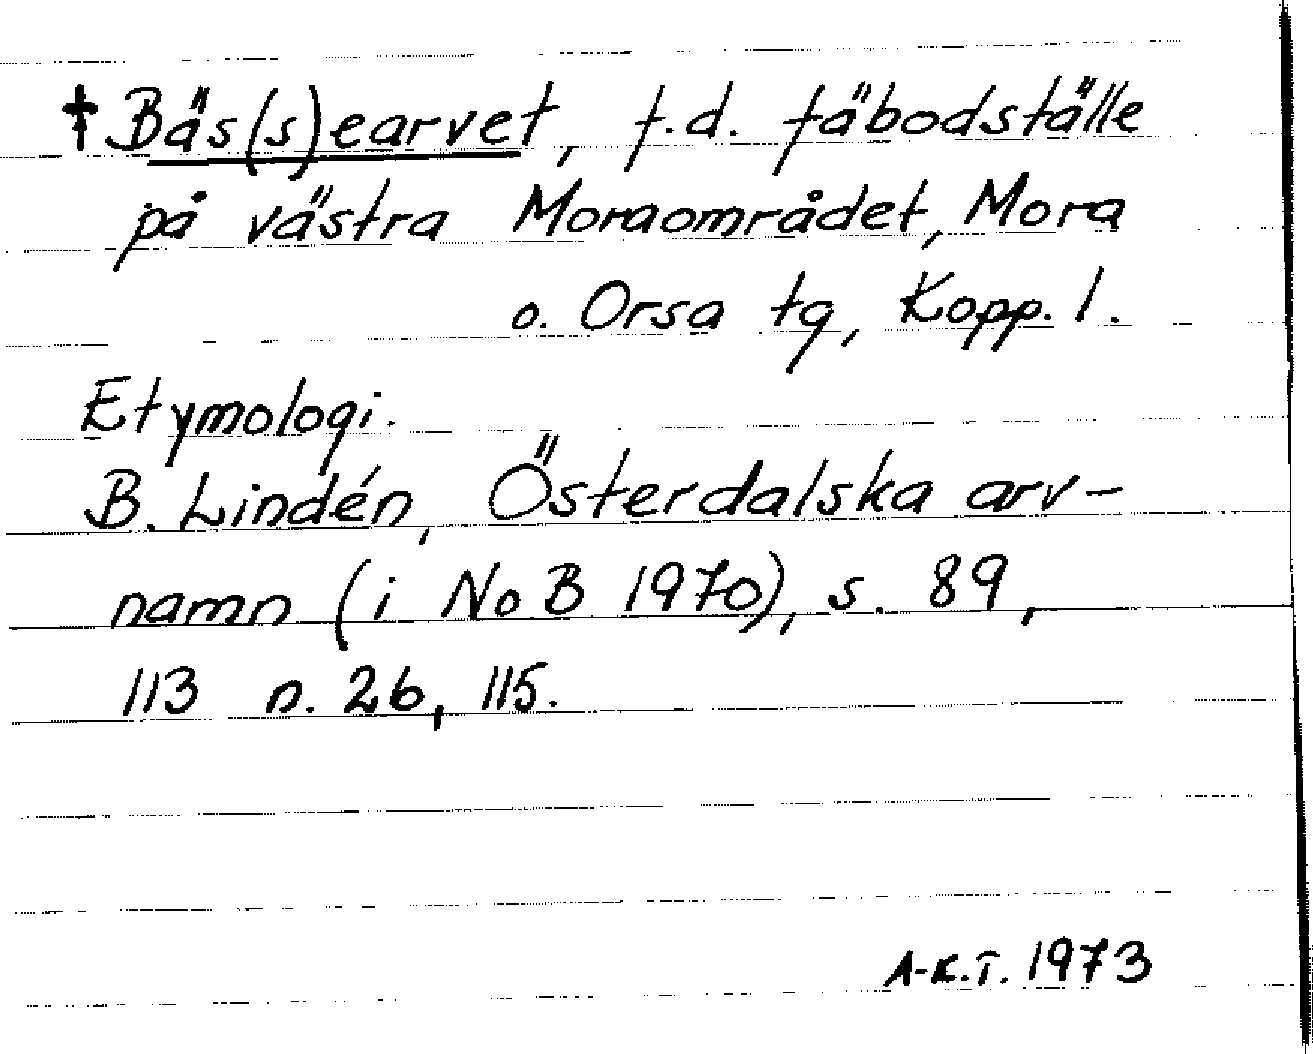 † Bäs(s)earvet, f.d. fäbodställe
på västra Moraområdet, Mora
o. Orsa tg, Kopp. l.
Etymologi.
B. Lindén, Österdalska arv-
namn (i NoB 1970), s. 89,
113 n. 26, 115.
A-K.T. 1973